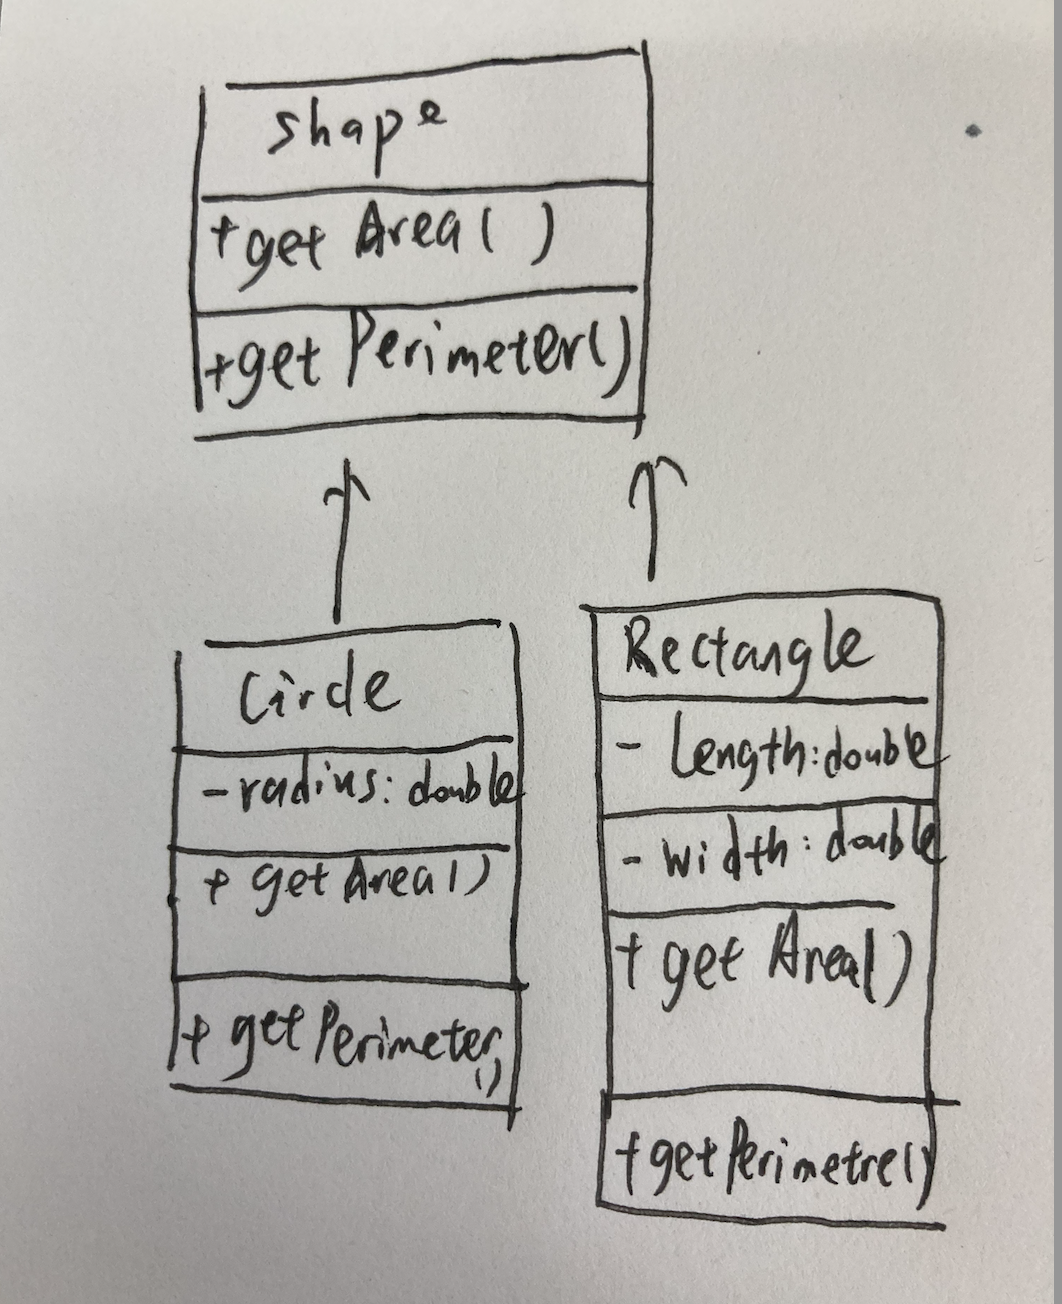 shape
+get Area( )
+get Perimeter()
Circle
-radius: double
+ get Area()
+ getPerimeter
()
Rectangle
- Length:double
- width: double
+ get Area()
+getPerimetre()